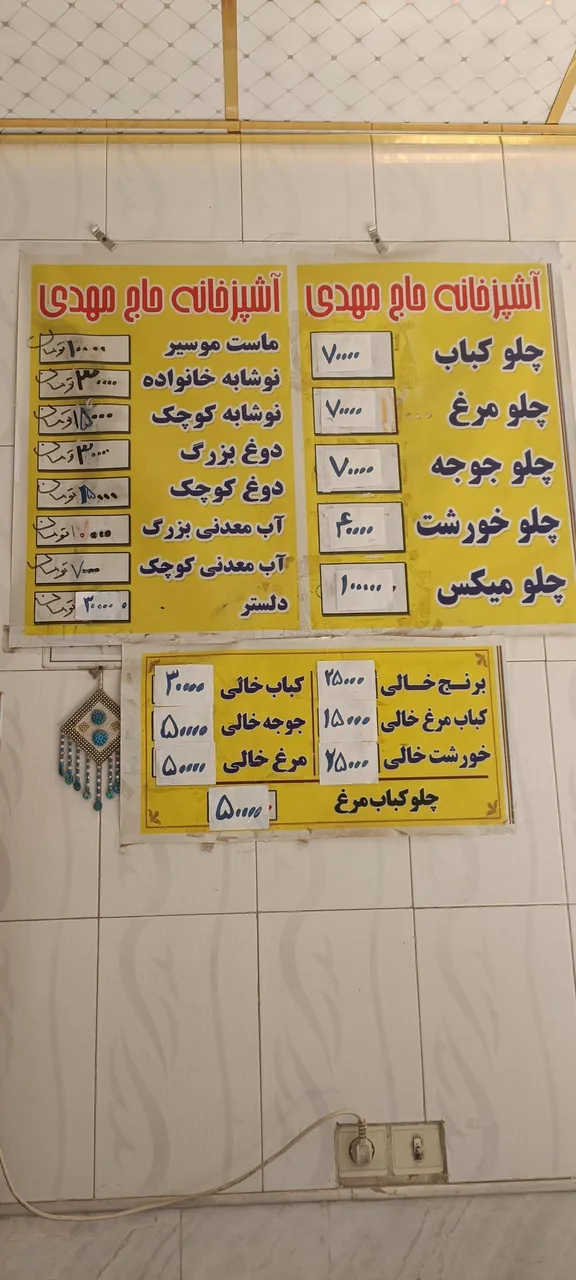 آشپزخانه حاج مهدی
چلو کباب ۷۰۰۰۰
چلو مرغ ۷۰۰۰۰
چلو جوجه ۷۰۰۰۰
چلو خورشت ۴۰۰۰۰
چلو میکس ۱۰۰۰۰۰
آشپزخانه حاج مهدی
ماست موسیر ۱۰۰۰۰ تومان
نوشابه خانواده ۳۰۰۰۰ تومان
نوشابه کوچک ۱۵۰۰۰ تومان
دوغ بزرگ ۳۰۰۰۰ تومان
دوغ کوچک ۱۵۰۰۰ تومان
آب معدنی بزرگ ۱۰۰۰۰ تومان
آب معدنی کوچک ۷۰۰۰ تومان
دلستر ۳۰۰۰۰ تومان
برنج خالی ۲۵۰۰۰ کباب خالی ۳۰۰۰۰
کباب مرغ خالی ۱۵۰۰۰ جوجه خالی ۵۰۰۰۰
خورشت خالی ۲۵۰۰۰ مرغ خالی ۵۰۰۰۰
چلو کباب مرغ ۵۰۰۰۰